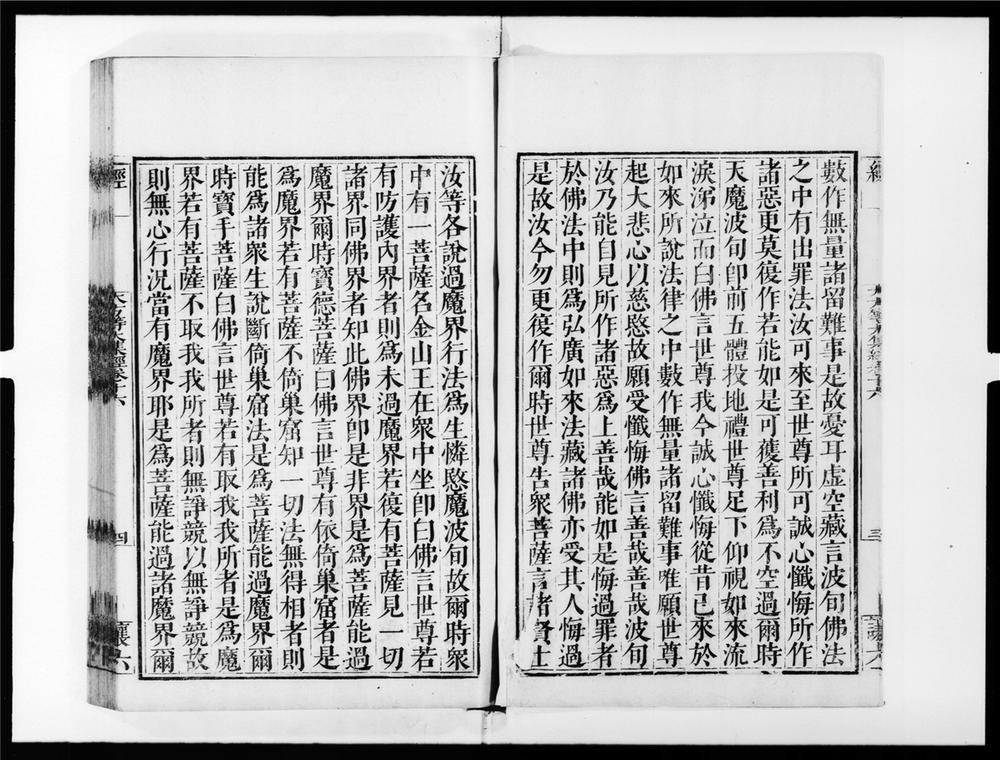 數作無量諸留難事是故憂耳虛空藏言波旬佛法
之中有出罪法汝可來至世尊所可誠心懺悔所作
諸惡更莫復作若能如是可獲善利爲不空過爾時
天魔波旬卽前五體投地禮世尊足下仰視如來流
淚涕泣而白佛言世尊我今誠心懺悔從昔已來於
如來所說法律之中數作無量諸留難事唯願世尊
起大悲心以慈愍故願受懺悔佛言善哉善哉波旬
汝乃能自見所作諸惡爲上善哉能如是悔過罪者
於佛法中則爲弘廣如來法藏諸佛亦受其人悔過
是故汝今勿更復作爾時世尊告衆菩薩言諸賢士
汝等各說過魔界行法爲生憐愍魔波旬故爾時衆
中有一菩薩名金山王在衆中坐卽白佛言世尊若
有防護內界者則爲未過魔界若復有菩薩見一切
諸界同佛界者知此佛界卽是非界是爲菩薩能過
魔界爾時寶德菩薩白佛言世尊有依倚巢窟者是
爲魔界若有菩薩不倚巢窟知一切法無得相者則
能爲諸衆生說斷倚巢窟法是爲菩薩能過魔界爾
時寶手菩薩白佛言世尊若有取我我所者是爲魔
界若有菩薩不取我我所者則無諍競以無諍競故
則無心行況當有魔界耶是爲菩薩能過諸魔界爾